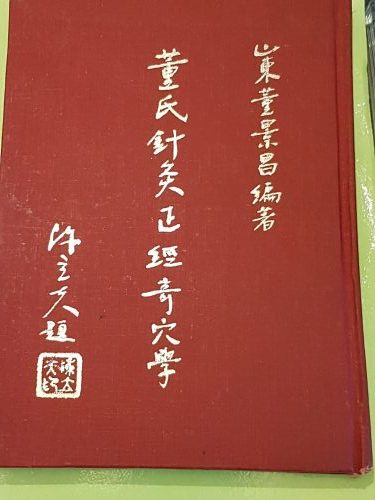 山東董景昌編著
董氏針灸正經奇穴學
陳立夫題